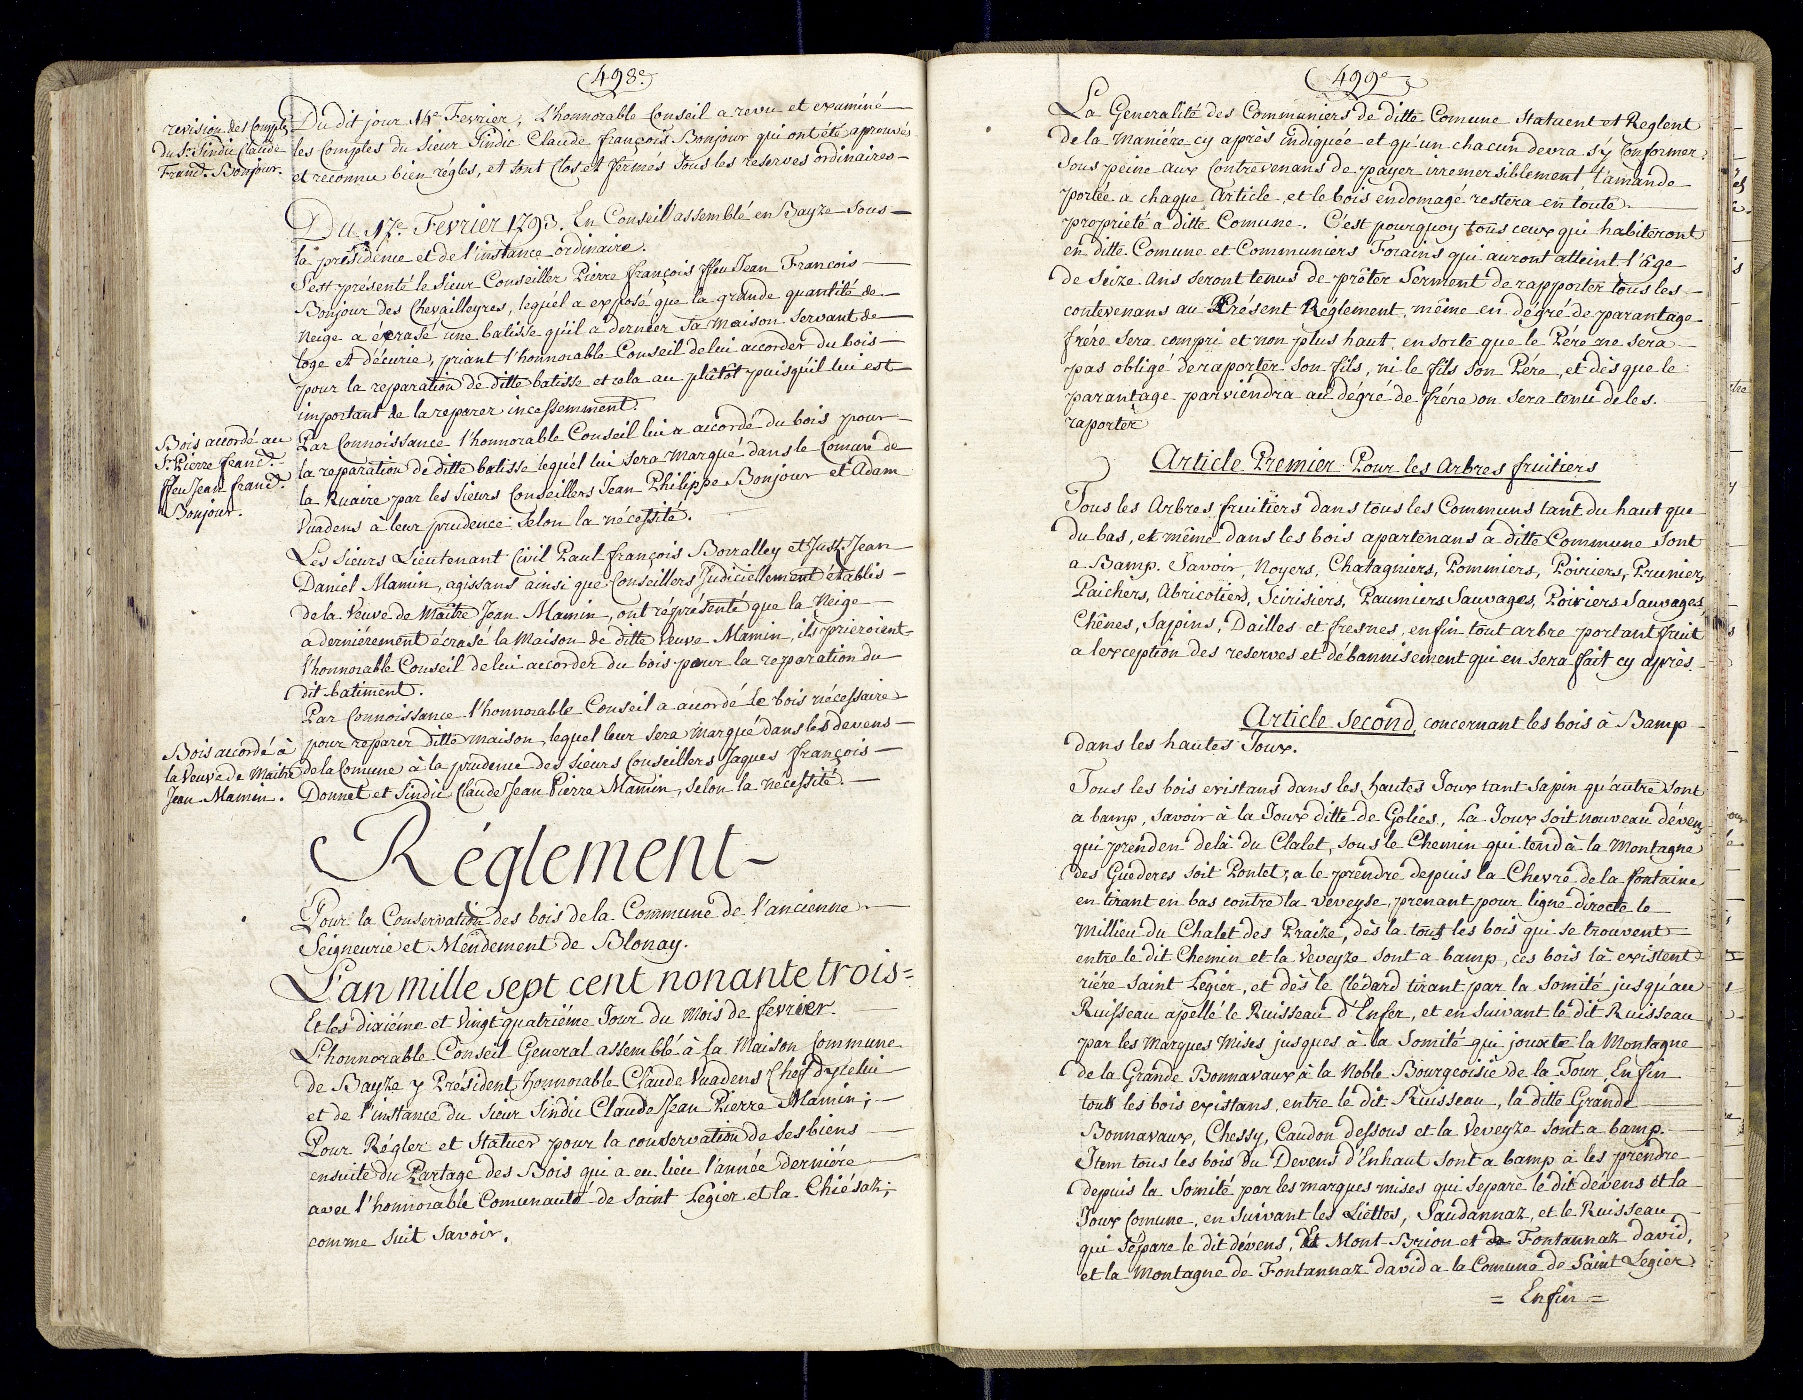 498e
revision des Compts
Du Sr Sindic Claude
Frand. Bonjour.
Du dit jour 14e Fevrier, L'honnorable Conseil a revu et examiné
les Comptes du Sieur Sindic Claude françois Bonjour qui ont été aprouvés
et reconnu bien régles, et sont Clos et fermés sous les reserves ordinaires
Du 17e Fevrier 1793. En Conseil assemblé en Bayze sous
la présidence et de l'instance ordinaire.
S'est présenté le Sieur Conseiller Pierre françois ffeu Jean François
Bonjour des Chevailleyres, lequél a exposé que la grande quantité de
Neige a écrasé une batisse qu'il a derrier sa maison servant de
loge et d'écurie, priant l'honnorable Conseil de lui accorder du bois
pour la reparation de ditte batisse et cela au plûtôt puisqu'il lui est
important de la reparer incessemment.
Bois accordé au
Sr Pierre frand.
ffeu Jean frand.
Bonjour.
Par Connoissance l'honnorable Conseil lui a accordé du bois pour
la reparation de ditte batisse lequél lui sera marqué dans le Comun de
la Ruaire par les Sieurs Conseillers Jean Philippe Bonjour et Adam
Vuadens à leur prudence selon la nécessité.
Les Sieurs Lieutenant Civil Paul françois Bovralley et Just. Jean
Daniel Mamin, agissans ainsi que Conseillers Judiciellement établis
de la Veuve de Maitre Jean Mamin, ont représenté que la Neige
a dernierement écrasé la Maison de ditte Veuve Mamin, ils prieroient
l'honnorable Conseil de lui accorder du bois pour la reparation du
dit batiment.
Bois accordé à
la Veuve de Maitre
Jean Mamin.
Par Connoissance l'honnorable Conseil a accordé le bois nécessaire
pour reparer ditte maison, lequel leur sera marqué dans les dévens
de la Comune à la prudence des Sieurs Conseillers Jaques françois
Donnet et Sindic Claude Jean Pierre Mamin, selon la nécessité.
Réglement
Pour la Conservation des bois de la Commune de l'ancienne
Seigneurie et Mendement de Blonay.
L'an mille sept cent nonante trois=
Et les dixiéme et Vingt quatriéme Jour du Mois de fevrier.
L'honnorable Conseil General assemblé à la Maison Commune
de Bayze y Président honnorable Claude Vuadens Chef d'ycelui
et de l'instance du Sieur Sindic Claude Jean Pierre Mamin;
Pour Régler et Statuer pour la conservation de ses biens
ensuite du Partage des Bois qui a eu lieu l'année derniére
avec l'honnorable Comunauté de Saint Legier et la Chiésaz;
comme suit savoir.
499e
La Generalité des Communiers de ditte Comune Statuent et Réglent
de la Maniére cy après indiquée et qu'un chacun devra s'y Conformer
sous peine aux Contrevenans de payer irremersiblement, l'amande
portée a chaque Article, et le bois endomagé restera en toute
propriété à ditte Comune. C'est pourquoy tous ceux qui habiteront
en ditte Comune et Communiers Forains qui auront atteint l'âge
de Seize Ans seront tenus de prêter Serment de rapporter tous les
contevenans au Présent Réglement, même en dégré de parantage
frére sera compri et non plus haut, en sorte que le Pére ne sera
pas obligé de raporter son fils, ni le fils son Pére, et dès que le
parantage parviendra au dégré de frére on sera tenu de les
raporter
Article Premier Pour les Arbres fruitiers
Tous les Arbres fruitiers dans tous les Communs tant du haut que
du bas, et même dans les bois apartenans à ditte Commune sont
a Bamp. Savoir, Noyers, Chatagniers, Pommiers, Poiriers, Pruniers,
Paichers, Abricotiers, Scirisiers, Paumiers Sauvages, Poiriers Sauvages,
Chênes, Sapins, Dailles et fresnes, enfin tout arbre portant fruit
a l'exception des reserves et débannisement qui en sera fait cy après
Article Second, concernant les bois à Bamp
dans les hautes Joux.
Tous les bois existans dans les hautes Joux tant Sapin qu'autre sont
a bamp, savoir à la Joux ditte de Goliés, La Joux soit nouveau dévens
qui prenden delà du Clalet, sous le Chemin qui tend à la Montagne
des Guéderes soit Pontet, a le prendre depuis la Chevre de la fontaine
en tirant en bas contre la Veveyse, prenant pour ligne directe le
Millieu du Chalet des Praize, dès la tous les bois qui se trouvent
entre le dit Chemin et la Veveyze sont a bamp, ces bois là existent
riére Saint Legier, et dès le Clédard tirant par la Somité jusqu'au
Ruisseau apellé le Ruisseau d'Enfer, et en suivant le dit Ruisseau
par les Marques Mises jusques à la Somité qui jouxte la Montagne
de la Grande Bonnavaux à la Noble Bourgeoisie de la Tour, Enfin
tous les bois existans, entre le dit Ruisseau, la ditte Grande
Bonnavaux, Chessy, Caudon dessous et la Veveyze sont a bamp.
Item tous les bois du Devens d'Enhaut sont a bamp à les prendre
depuis la Somité par les marques mises qui separe le dit dévens et la
Joux Comune, en suivant les Liettes, Saudannaz, et le Ruisseau
qui sépare le dit dévens, et Mont Brion et de Fontannaz david,
et la Montagne de Fontannaz david a la Comune de Saint Legier
= Enfin =